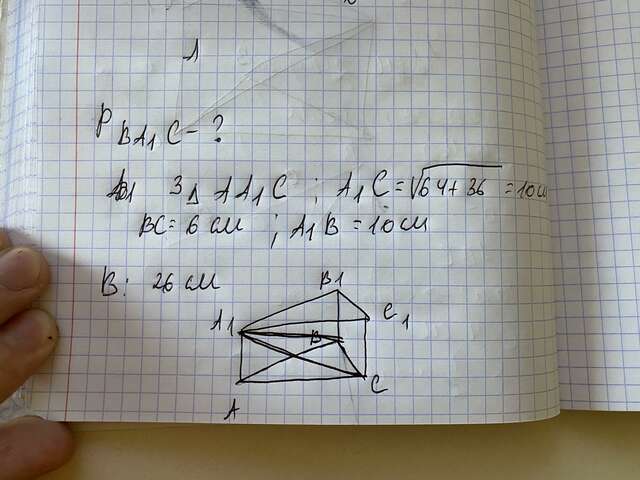 Л
P BA1C - ?
З Δ AA1C ; A1C = √64+36 = 10см
BC = 6 см ; A1B = 10см
В: 26 см
B1
A1
C1
B
C
A